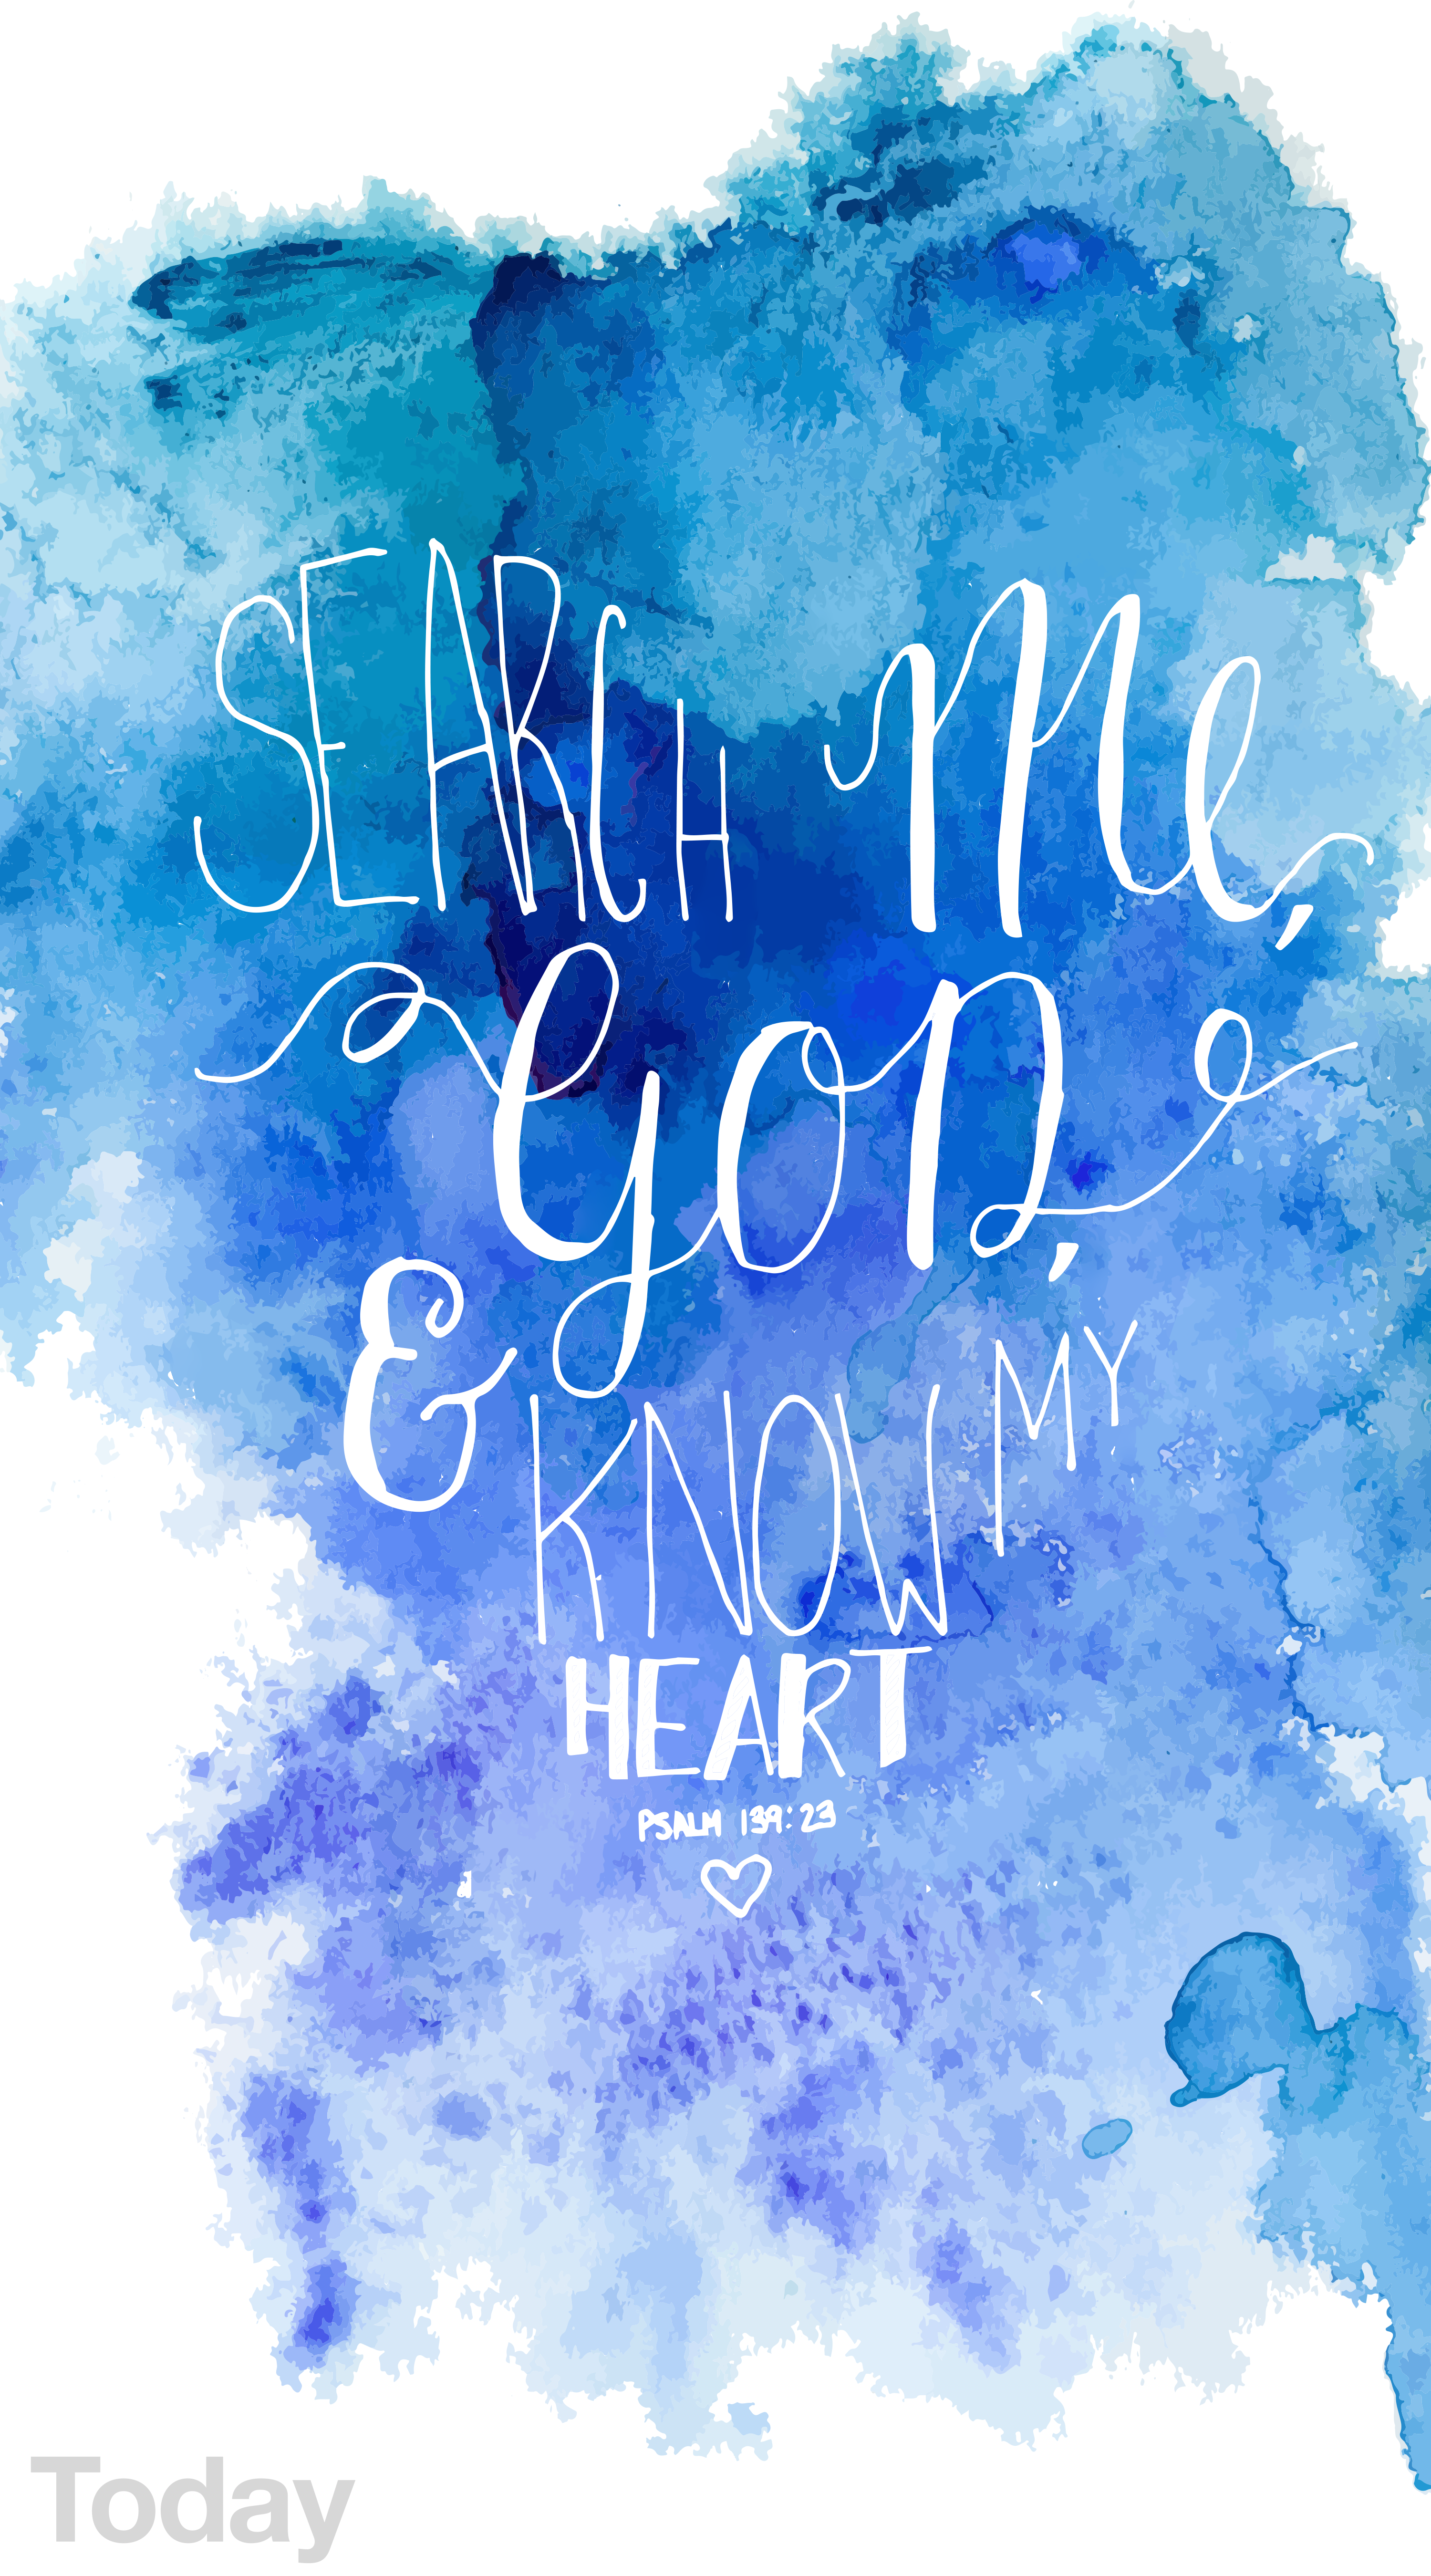 SEARCH me,
GOD,
& KNOW MY
HEART
PSALM 139:23
Today